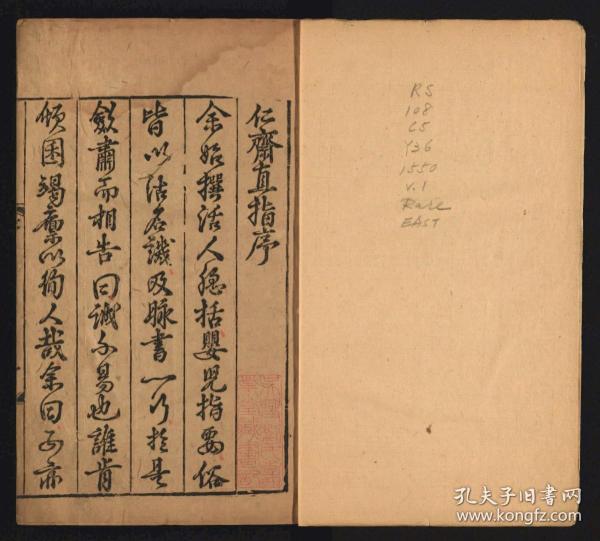 仁齋直指序
余始撰活人總括嬰兒指要俗
皆以沽名譏及脉書一行於是
斂肅而相告曰誠不易也誰肯
傾囷竭廪以徇人哉余曰子亦
RS
108
C5
Y36
1550
v.1
Rare
EAST
孔夫子旧书网
www.kongfz.com